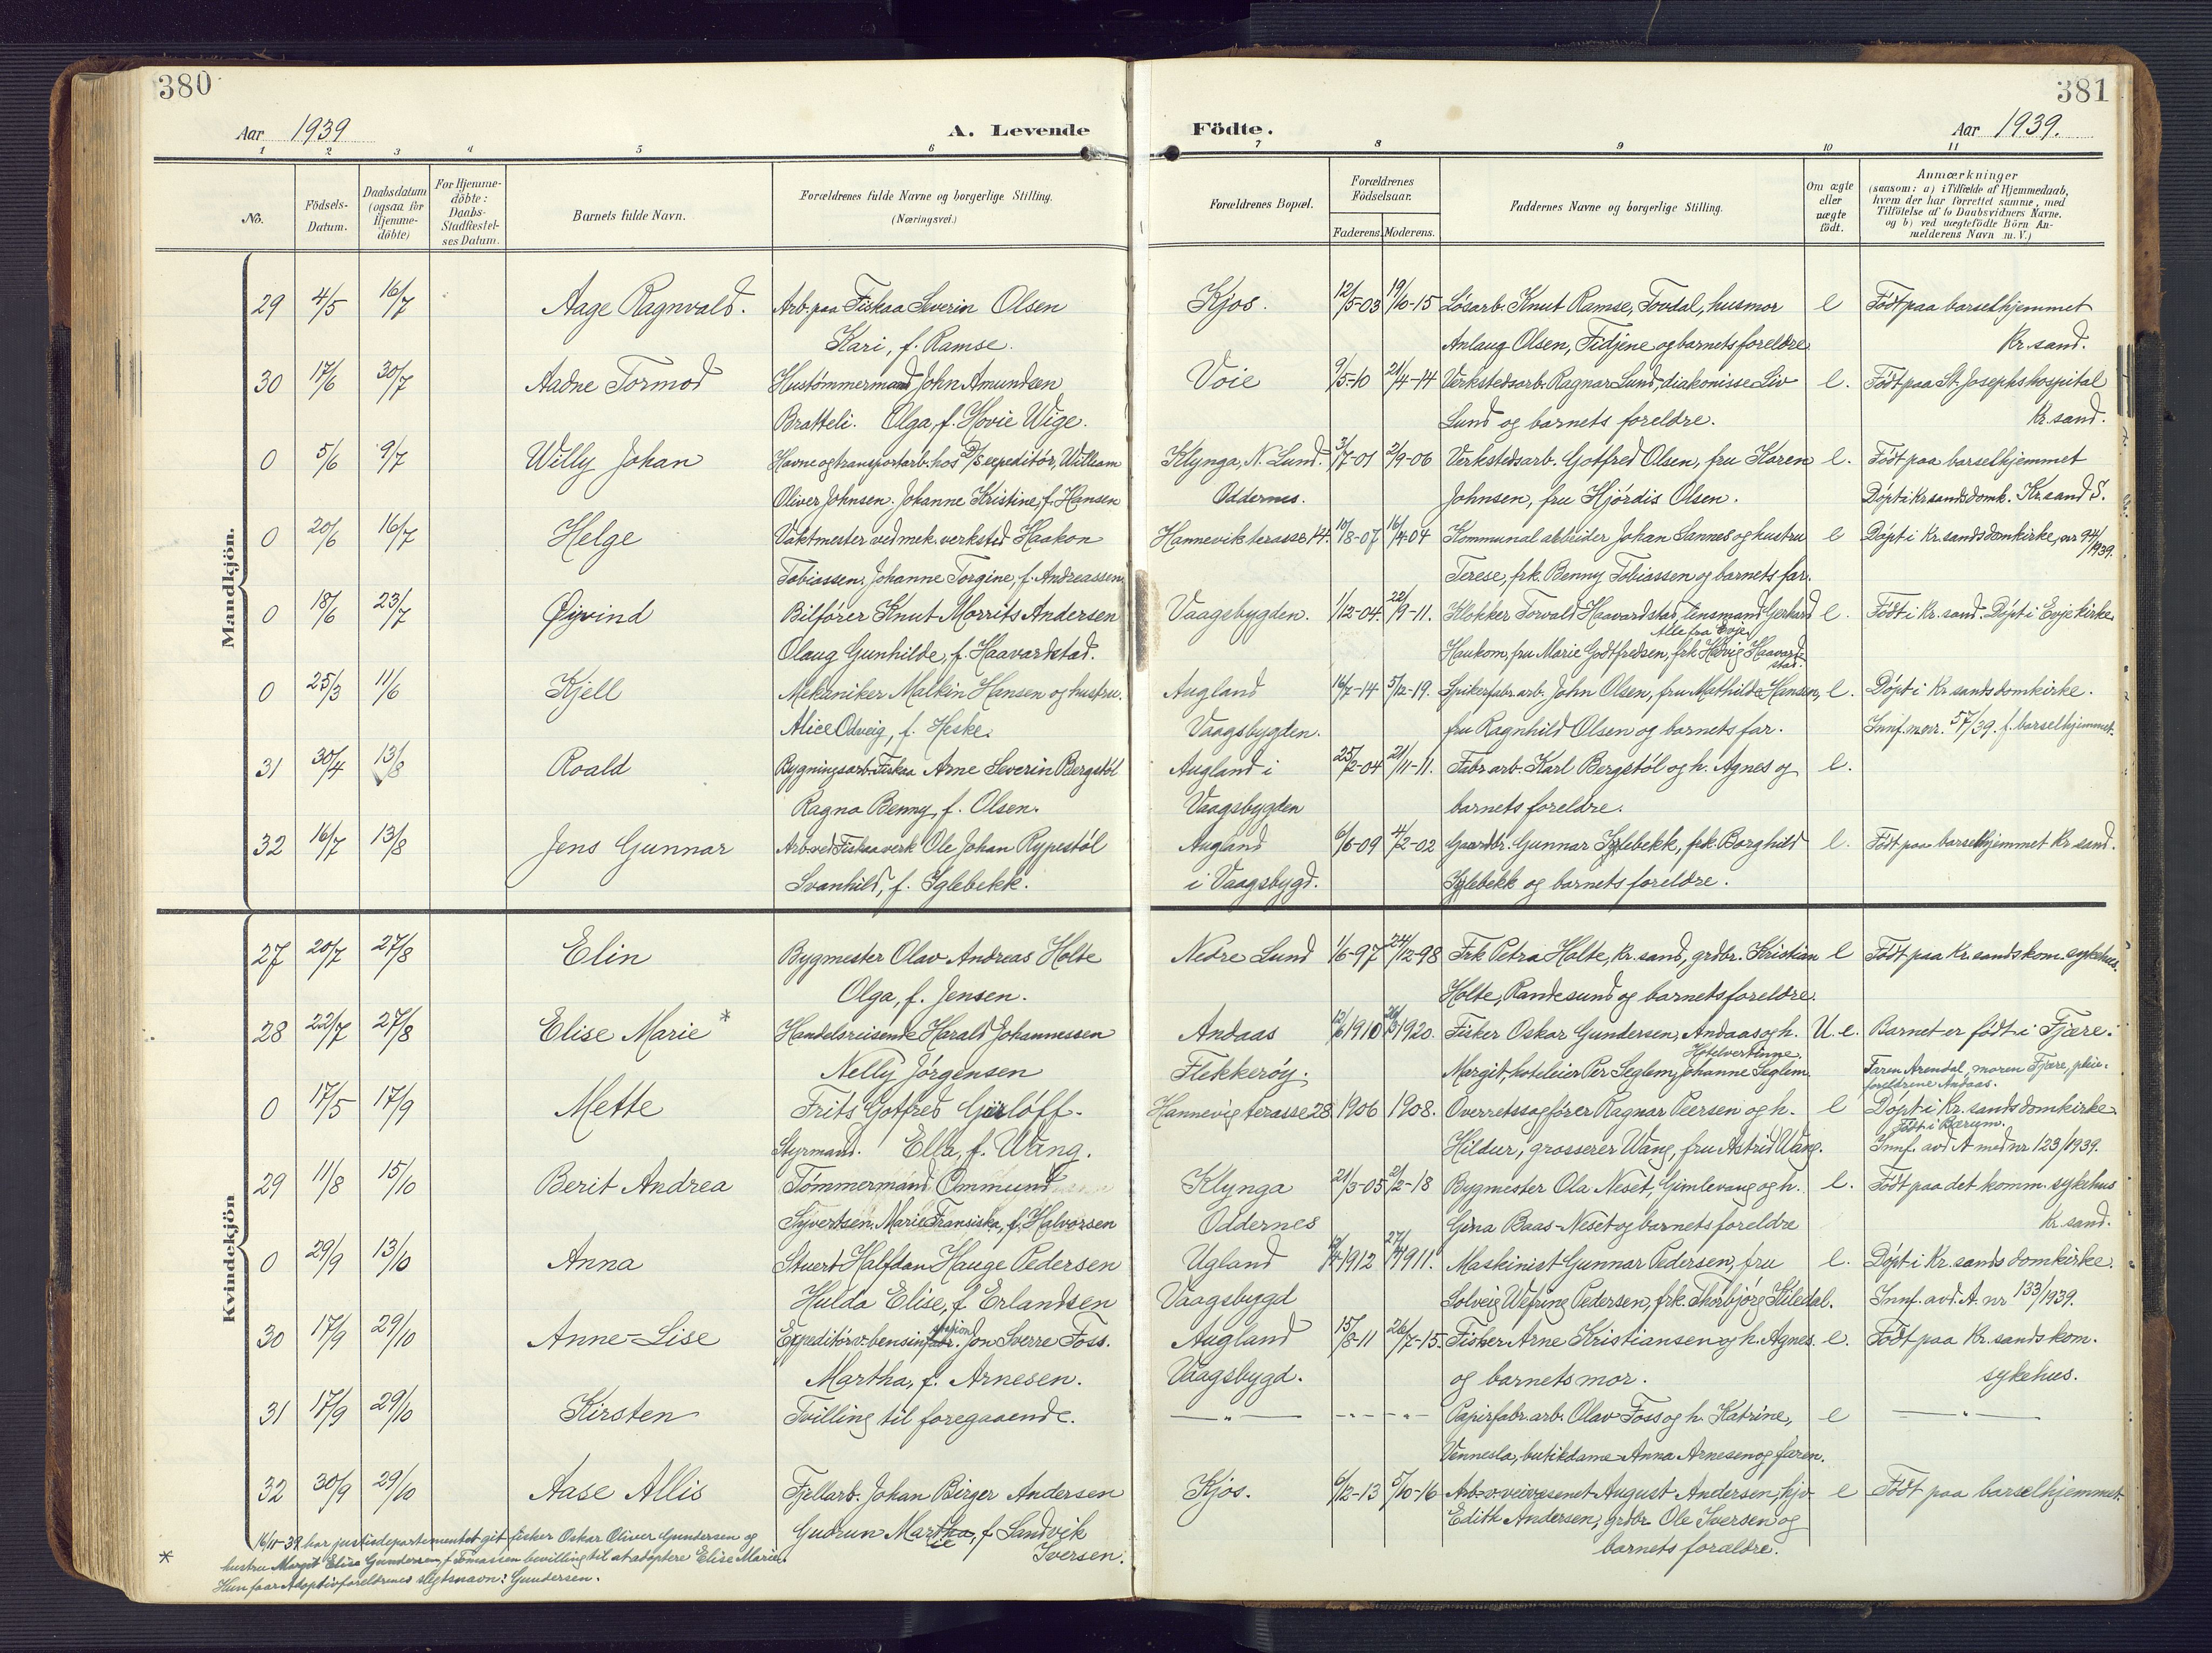 380
Aar 1939
A. Levende
1 2 3 4 5 6
No.
Födsels-Datum.
Daabsdatum (ogsaa for Hjemme-döbte)
For Hjemme-döbte: Daabs-Stadfæstel-ses Datum.
Barnets fulde Navn.
Forældrenes fulde Navne og borgerlige Stilling.
(Næringsvei.)
Födte.
381
Aar 1939.
7 8 9 10 11
Forældrenes Bopæl.
Forældrenes Födselsaar.
Faderens. Moderens.
Faddernes Navne og borgerlige Stilling.
Om ægte eller uægte födt.
Anmærkninger
(saasom: a) i Tilfælde af Hjemmedaab,
hvem der har forrettet samme, med
Tilföielse af to Daabsvidners Navne.
og b) ved uægtefödte Börn An-
melderens Navn m. V.)
Mandkjön.
29 4/5 16/7 Aage Ragnvald. Arb. paa Fiskaa Severin Olsen Kjos. 12/5-03 19/10-15 Løsarb. Knut Ramse, Tovdal, husmor e Født paa barselhjemmet
Kari, f. Ramse. Anlaug Olsen, Fidjene og barnets foreldre. Kr.sand.
30 17/6 30/7 Aadne Tormod Hustömmermand John Amundsen Voie 9/5-10 21/4-14 Verkstedsarb. Ragnar Lund, diakonisse Liv e. Født paa St. Josephs hospital
Bratteli. Olga, f. Hovie Wige. Lund og barnets foreldre. Kr.sand.
0 5/6 9/7 Willy Johan Havne og transportarb. hos D/S expeditör, William Klynga, N. Lund. 3/7-01 2/9-06 Verkstedsarb. Gotfred Olsen, fru Karen e. Født paa barselhjemmet
Oliver Johnsen. Johanne Kristine, f. Hansen Oddernes. Johnsen, fru Hjördis Olsen. Døpt i Kr.sands domk. Kr.sand S.
0 20/6 16/7 Helge Vaktmester ved mek. verksted Haakon Hannevikterasse 14. 10/8-07 16/4-04 Kommunal arbeider Johan Sannes og hustru e Døpt i Kr.sands domkirke, nr 94/1939.
Tobiassen. Johanne Torgine, f. Andreassen. Terese, frk. Benny Tobiassen og barnets far.
0 18/6 23/7 Øyvind Bilförer Knut Morrits Andersen Vaagsbygden. 1/12-04. 22/9-11. Klokker Torvald Haavardstad, lensmand Gerhard e. Født i Kr.sand. Døpt i Evje kirke.
Alle fra Evje
Olaug Gunhilde, f. Haavardstad. Haukom, fru Marie Godtfredsen, frk Hedvig Haavard-
stad.
0 25/3 11/6 Kjell Mekaniker Malkin Hansen og hustru. Augland 16/7-14 5/12-19. Spikerfabr.arb. John Olsen, fru Mathilde Hansen, e. Døpt i Kr.sands domkirke.
Alice Odveig, f. Heske. Vaagsbygden. fru Ragnhild Olsen og barnets far. Innf. m. nr. 57/39. f. barselhjemmet.
31 30/4 13/8 Roald Bygningsarb. Fiskaa Arne Severin Bergstöl Augland i 25/2-04 21/11-11. Fabr. arb. Karl Bergstöl og h. Agnes og e.
Ragna Benny, f. Olsen. Vaagsbygden barnets foreldre.
32 16/7 13/8 Jens Gunnar Arb. ved Fiskaa verk Ole Johan Rypestöl Augland 6/6-09 4/2-02 Gaardbr. Gunnar Iglebekk, frk. Borghild e. Født paa barselhjemmet Kr.sand.
Svanhild, f. Iglebekk. i Vaagsbygd. Iglebekk og barnets foreldre.
Kvindekjön
27 20/7 27/8 Elin Bygmester Olav Andreas Holte Nedre Lund 1/6-97 24/12-98 Frk Petra Holte, Kr.sand, grdbr. Kristian e Født paa Kr.sands kom. sykehus.
Olga, f. Jensen. Holte, Randesund og barnets foreldre.
28 22/7 27/8 Elise Marie * Handelsreisende Harald Johannessen Andaas 12/6 1910 1920. Fisker Oskar Gundersen, Andaas og h. U. e. Barnet er født i Fjære.
Hotelvertinne
Nelly Jörgensen Flekkeröy. Margit, hoteleier Per Seglem, Johanne Seglem. Faren Arendal, moren Fjære, pleie-
foreldrene Andaas.
0 17/5 17/9 Mette Frits Gotfred Gierlöff. Hannevigterasse 28 1906 1908. Overretssagfører Ragnar Peersen og h. e Døpt i Kr.sands domkirke
Født i Bærum.
Styrmand. Ella, f. Wang. Hildur, grosserer Wang, fru Astrid Wang. Innf. avd A med nr 123/1939.
29 11/8 15/10 Berit Andrea Tömmermand Ommund Klynga 21/3-05 2/2-18 Bygmester Ola Neset, Gimlevang og h. e. Født paa det komm. sykehus
Syvertsen. Marie Fransiska, f. Halvorsen Oddernes Gina Baas-Neset og barnets foreldre Kr.sand.
0 29/9 13/10 Anna Stuert Halfdan Hauge Pedersen Ugland 1912 27/4 1911. Maskinist Gunnar Pedersen, fru e. Døpt i Kr.sands domkirke.
Hulda Elise, f. Erlandsen Vaagsbygd Solveig Wefring Pedersen, frk. Thorbjörg Kiledal. Innf. avd. A. nr 133/1939.
30 17/9 29/10 Anne-Lise Expeditör v. bensinstasjon Jon Sverre Foss. Augland 15/8-11 26/7-15. Fisker Arne Kristiansen og h. Agnes. e. Født paa Kr.sands kom.
Martha, f. Arnesen. Vaagsbygd. og barnets mor. sykehus.
31 17/9 29/10 Kirsten Tvilling til foregaaende. — " — - - - " - Papirfabr. arb. Olav Foss og h. Katrine, e — " —
Vennesla, butikdame Anna Arnesen og faren.
32 30/9 29/10 Aase Allis Fjellarb. Johan Birger Andersen Kjos. 6/12-13 5/10-16 Arb. v. veivesenet August Andersen, hjv. e Født paa barselhjemmet.
Gudrun Martha, f Sandvik Edith Andersen, grdbr Ole Iversen og
Iversen. barnets foreldre.
* 16/11-39 har justisdepartementet git fisker Oskar Oliver Gundersen og
hustru Margit Elisa Gundersen, f Tomassen bevilling til at adoptere Elise Marie.
Hun faar Adoptivforeldrenes slegtsnavn: Gundersen.